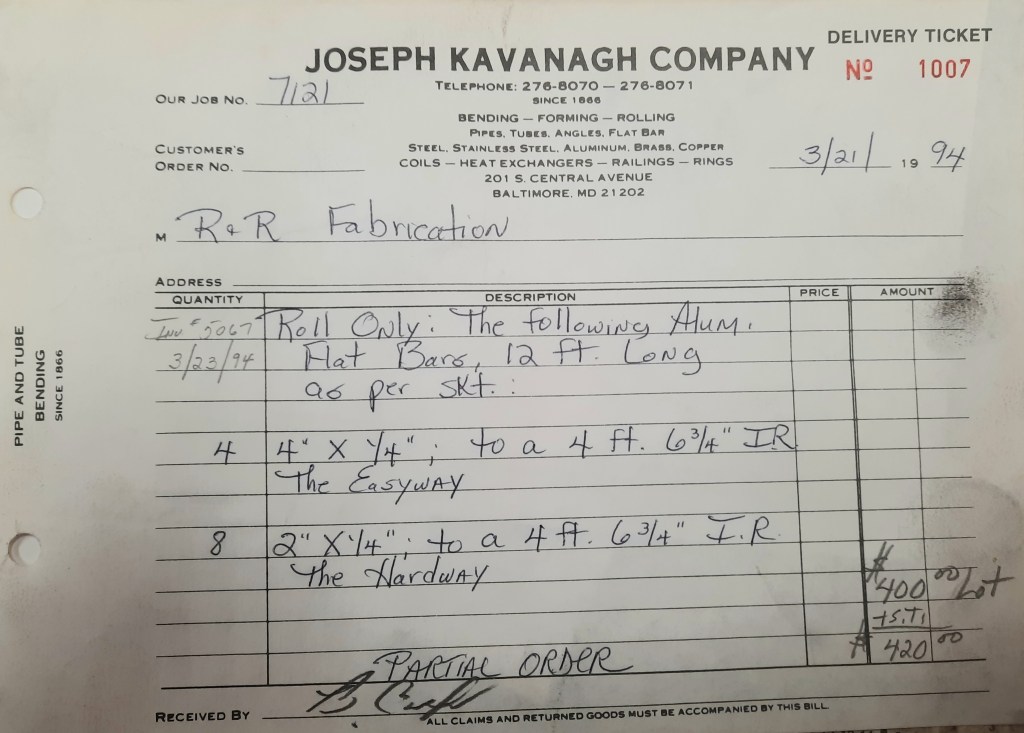 DELIVERY TICKET
JOSEPH KAVANAGH COMPANY
Nº 1007
TELEPHONE: 276-8070 — 276-8071
SINCE 1866
OUR JOB NO. 7121
BENDING — FORMING — ROLLING
PIPES, TUBES, ANGLES, FLAT BAR
STEEL, STAINLESS STEEL, ALUMINUM, BRASS, COPPER
COILS — HEAT EXCHANGERS — RAILINGS — RINGS
201 S. CENTRAL AVENUE
BALTIMORE, MD 21202
CUSTOMER'S
ORDER NO.
3/21/ 19 94
M R & R Fabrication
ADDRESS
QUANTITY DESCRIPTION PRICE AMOUNT
Inv # 5067 Roll Only: The following Alum.
3/23/94 Flat Bars, 12 ft. Long
as per skt.:
4 4" X 1/4"; to a 4 ft. 6 3/4" I.R.
The Easyway
8 2" X 1/4"; to a 4 ft. 6 3/4" I.R.
The Hardway
$400 00 Lot
+S.T.
$420 00
PARTIAL ORDER
RECEIVED BY
ALL CLAIMS AND RETURNED GOODS MUST BE ACCOMPANIED BY THIS BILL
PIPE AND TUBE
BENDING
SINCE 1866